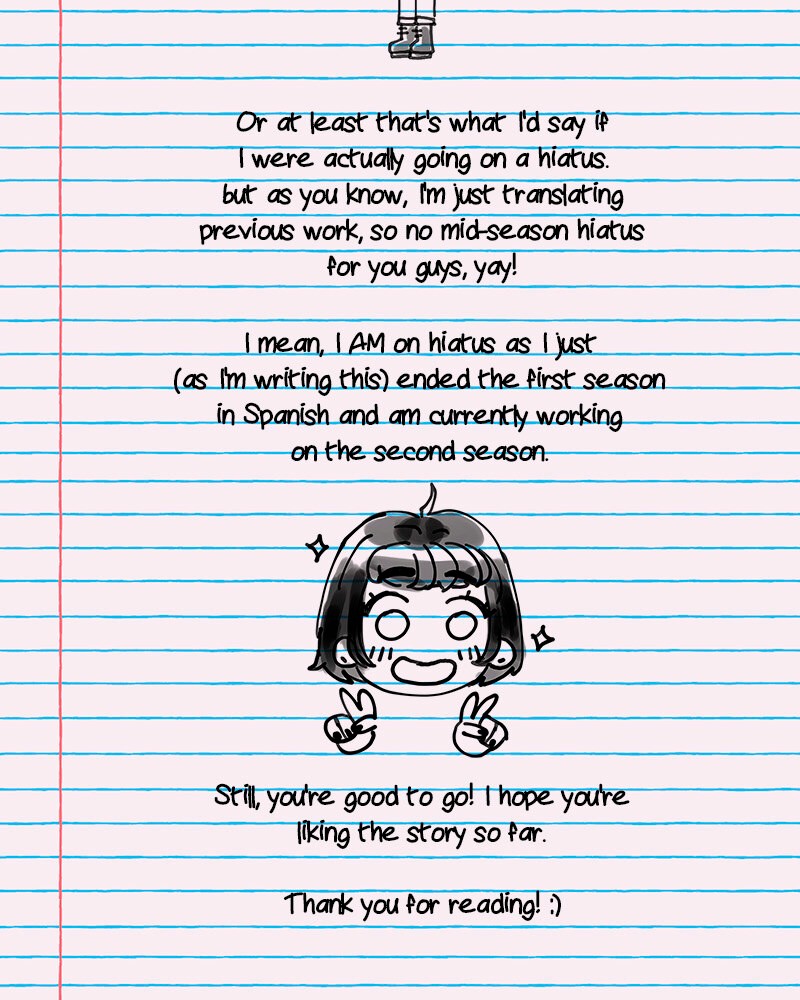 Or at least that's what I'd say if
I were actually going on a hiatus.
but as you know, I'm just translating
previous work, so no mid-season hiatus
for you guys, yay!
I mean, I AM on hiatus as I just
(as I'm writing this) ended the first season
in Spanish and am currently working
on the second season.
Still, you're good to go! I hope you're
liking the story so far.
Thank you for reading! :)